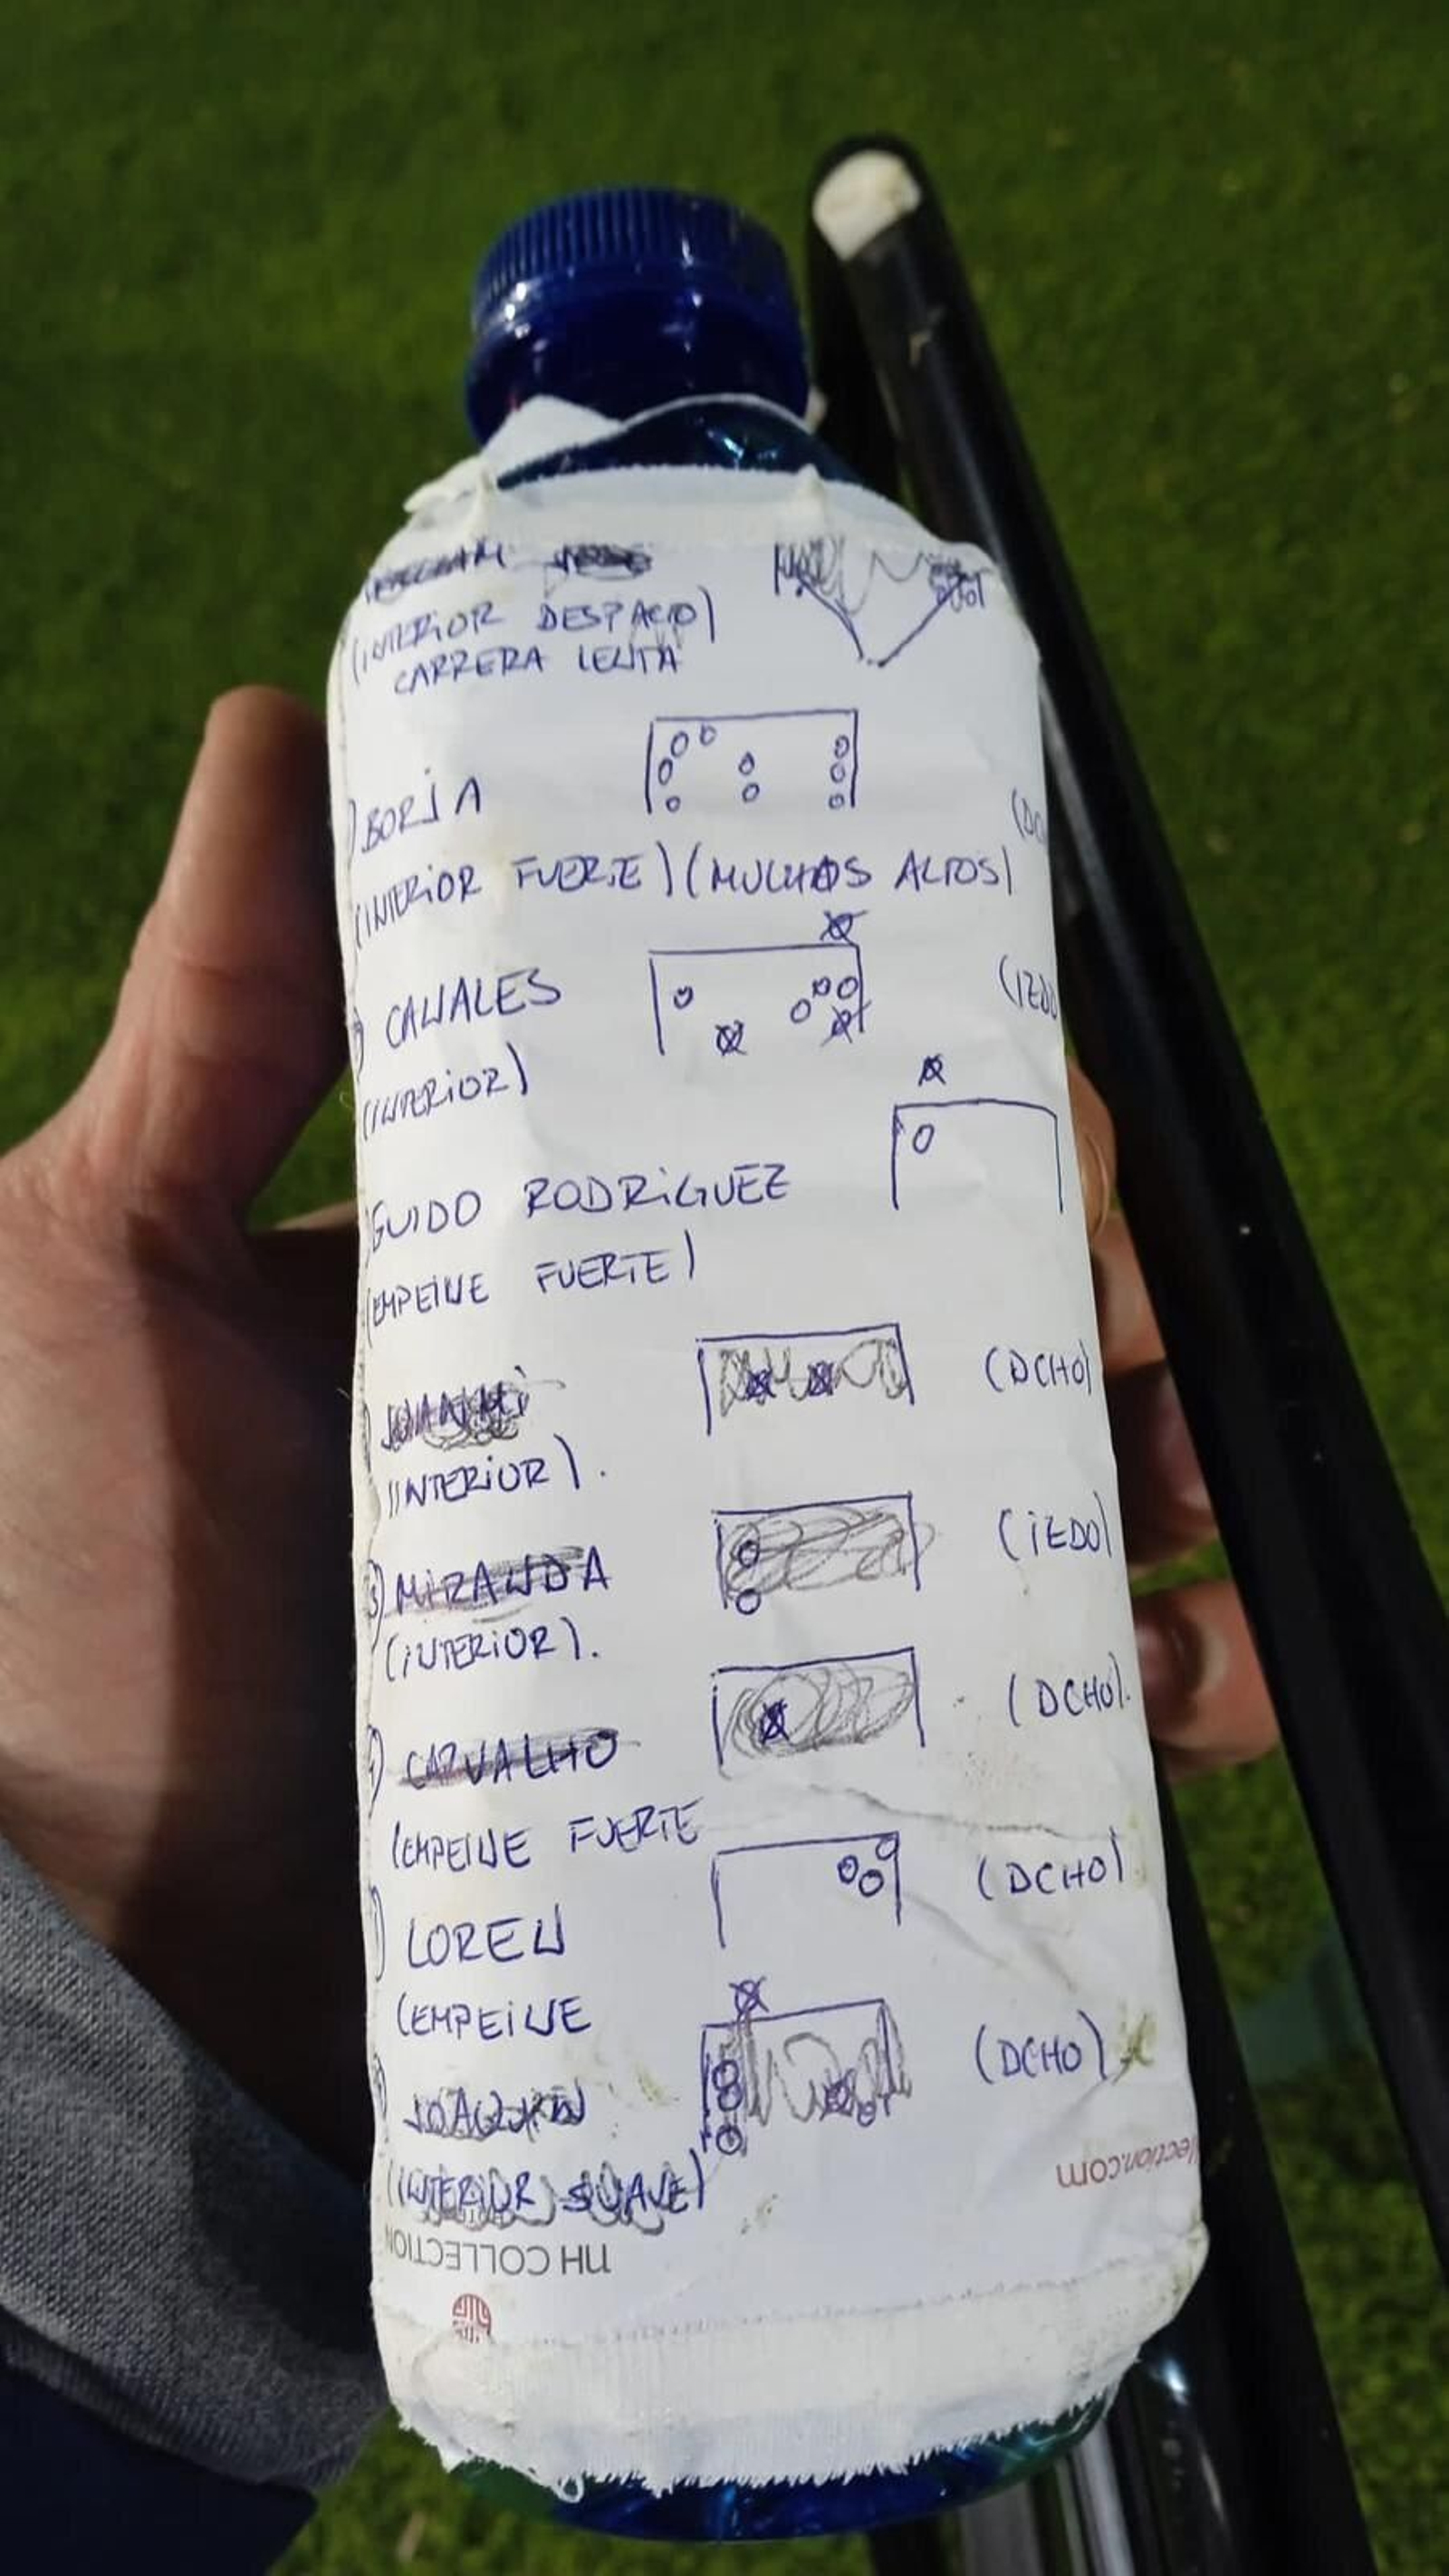 (INTERIOR DESPACIO)
CARRERA LENTA
BORJA
(INTERIOR FUERTE) (MUCHOS ALTOS)
CANALES (IZDO
(INTERIOR)
GUIDO RODRIGUEZ
(EMPEINE FUERTE)
JUANMI (DCHO)
(INTERIOR).
MIRANDA (IZDO)
(INTERIOR).
CARVALHO (DCHO).
(EMPEINE FUERTE
LOREN (DCHO)
(EMPEINE
JOAQUIN (DCHO)
(INTERIOR SUAVE)
lection.com
NH COLLECTION